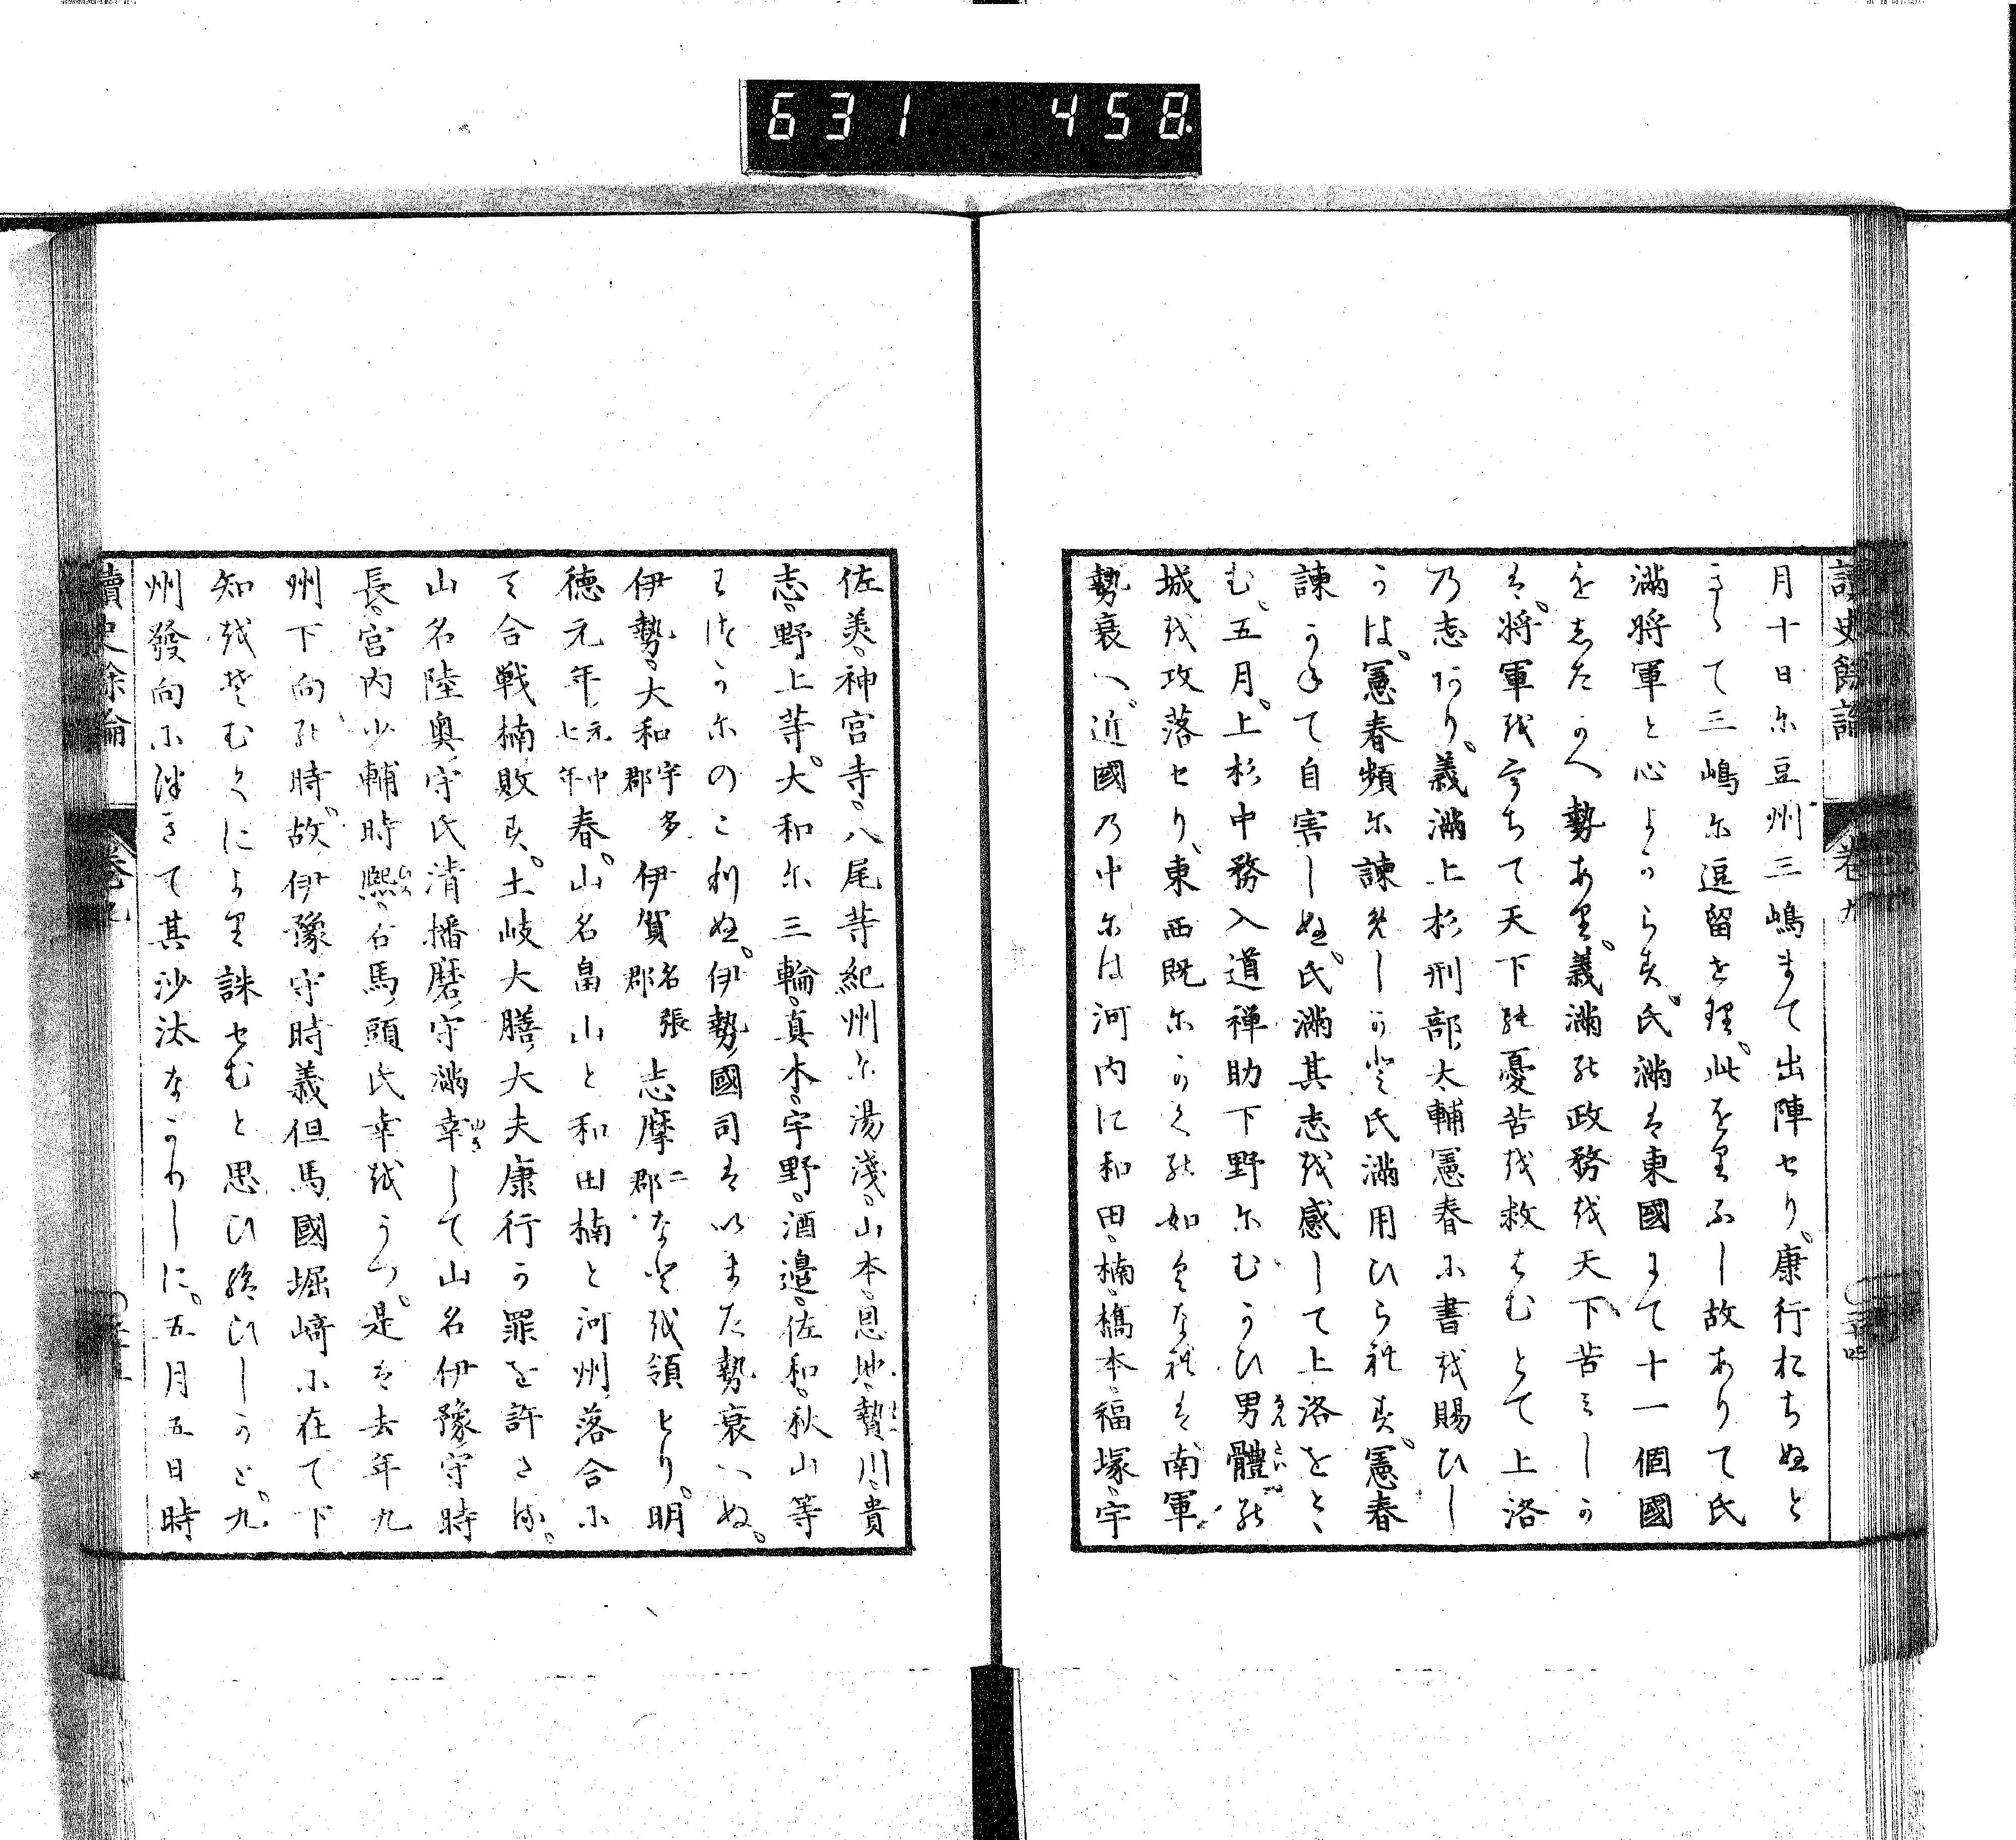 631 458
讀史餘論 卷九
月十日尓豆州三嶋まて出陣セり康行おちぬと
きゝて三嶋尓逗留を理此をりふし故ありて氏
滿將軍と心よからす氏滿は東國にて十一個國
をしたかへ勢あり義滿の政務を天下苦ミしか
は將軍をうちて天下の憂苦を救はむとて上洛
乃志あり義滿上杉刑部大輔憲春に書を賜ひし
かは憲春頻尓諫めしかと氏滿用ひられす憲春
諫かねて自害しぬ氏滿其志を感して上洛をとゝ
む五月上杉中務入道禅助下野尓むかひ男體の
城を攻落セり東西既尓かくの如くなれは南軍
勢衰へ近國乃中尓は河内に和田楠橋本福塚宇
佐美神宮寺八尾等紀州尓湯淺山本恩地贄川貴
志野上等大和尓三輪真木宇野酒邉佐和秋山等
わつか尓のこりぬ伊勢國司はいまた勢衰へぬ
伊勢大和宇多郡伊賀名張郡志摩二郡なとを領セり明
徳元年元中七年春山名畠山と和田楠と河州落合に
て合戦楠敗す土岐大膳大夫康行か罪を許さる
山名陸奥守氏清播磨守滿幸して山名伊豫守時
長宮内少輔時熈右馬頭氏幸をうつ是は去年九
州下向の時故伊豫守時義但馬國堀﨑に在て下
知をそむくにより誅セむと思ひ給ひしかと九
州發向に決きて其沙汰なかりしに五月五日時
讀史餘論 卷九